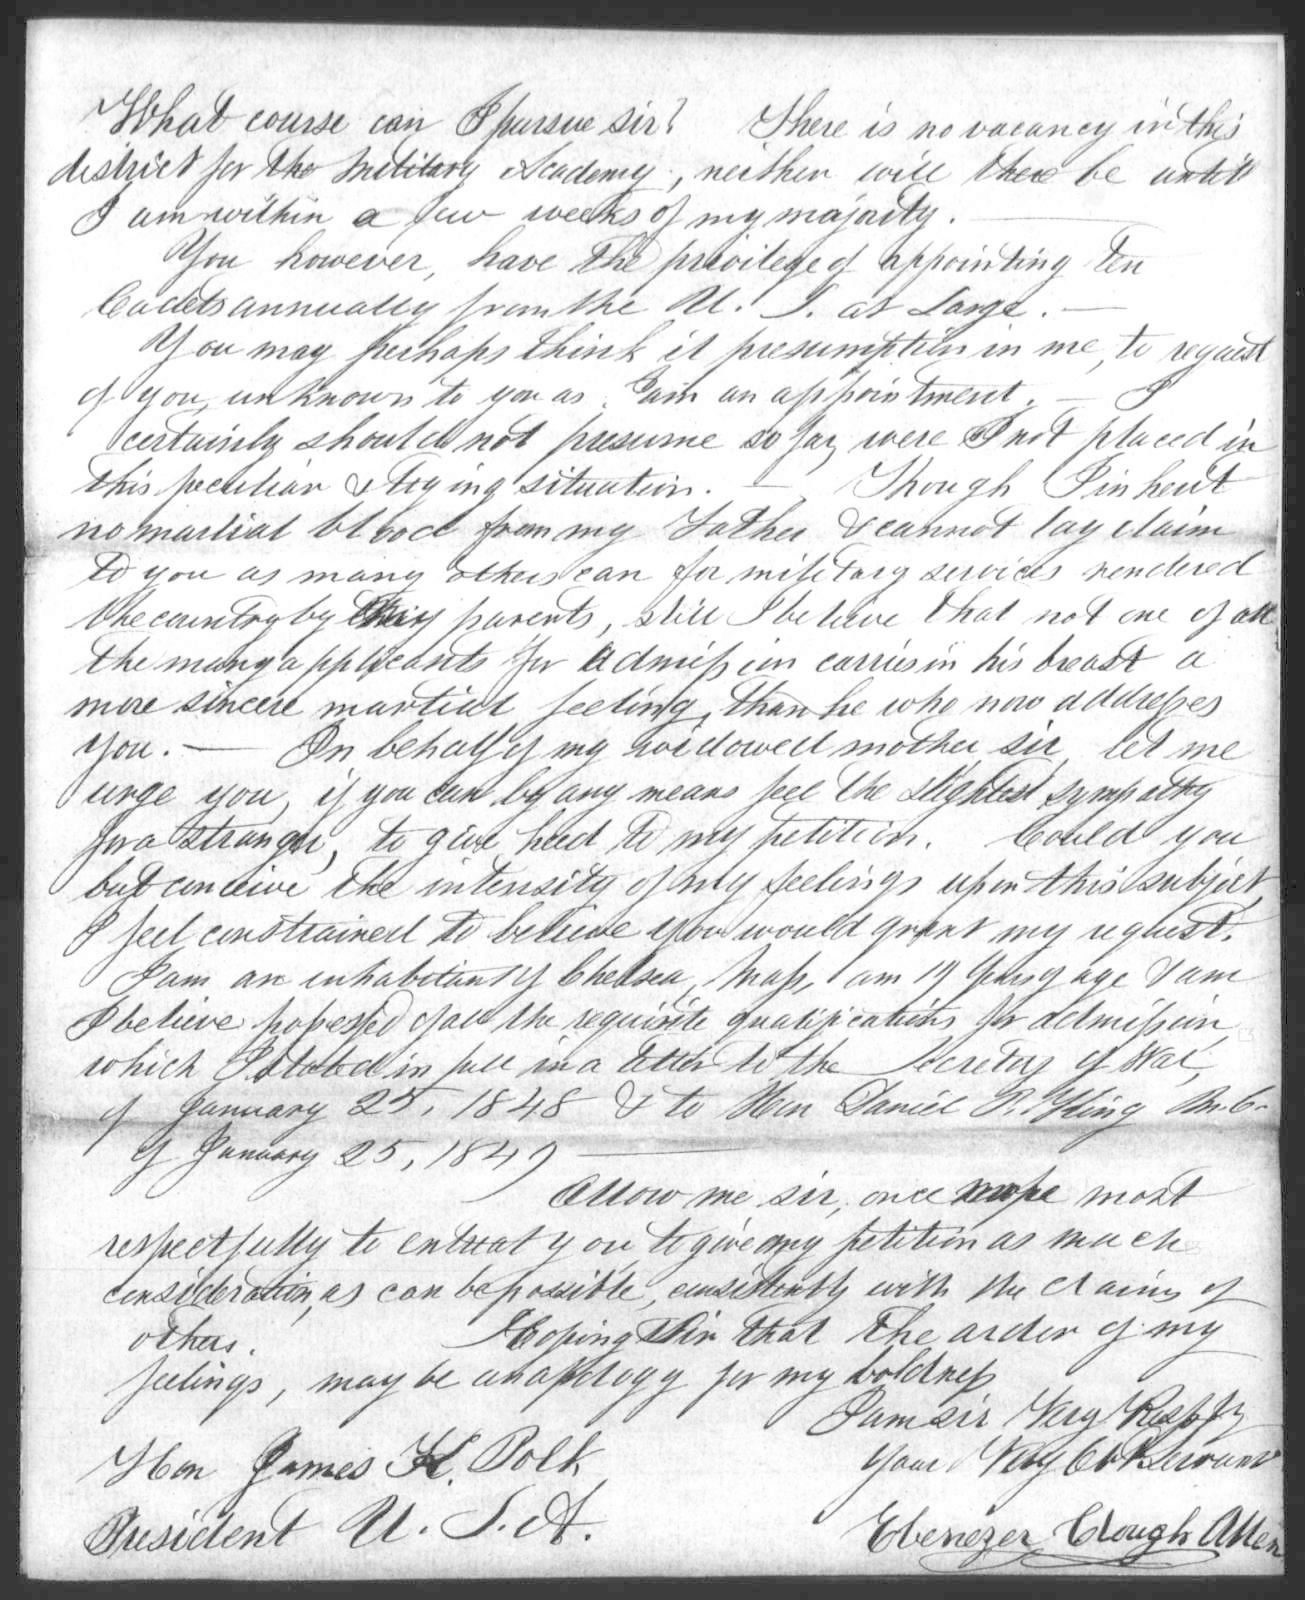 What course can I pursue sir? There is no vacancy in this
district for the Military Academy, neither will there be until
I am within a few weeks of my majority. —
You however, have the privilege of appointing ten
Cadets annually from the U. S. at Large. —
You may perhaps think it presumption in me, to request
of you, unknown to you as I am an appointment. — I
certainly should not presume so far, were I not placed in
this peculiar & trying situation. — Though I inherit
no martial blood from my Father & cannot lay claim
to you as many others can for military services rendered
the country by their parents, still I believe that not one of all
the many applicants for admission carries in his breast a
more sincere martial feeling, than he who now addresses
you. — In behalf of my widowed mother sir, let me
urge you, if you can by any means feel the slightest sympathy
for a stranger, to give heed to my petition. Could you
but conceive the intensity of my feelings upon this subject,
I feel constrained to believe you would grant my request.
I am an inhabitant of Chelsea, Mass, am 19 years of age & am
I believe possessed of all the requisite qualifications for admission,
which I stated in full in a letter to the Secretary of War,
of January 25, 1848 & to Hon Daniel P. King M.C.
of January 25, 1847 —
Allow me sir, once more most
respectfully to entreat you to give my petition as much
consideration, as can be possible, consistently with the claims of
others. Hoping Sir that the ardor of my
feelings, may be an apology for my boldness
I am sir Very Respfy
Your Very Obt Servant
Hon James K. Polk
President U. S. A.
Ebenezer Clough Allen